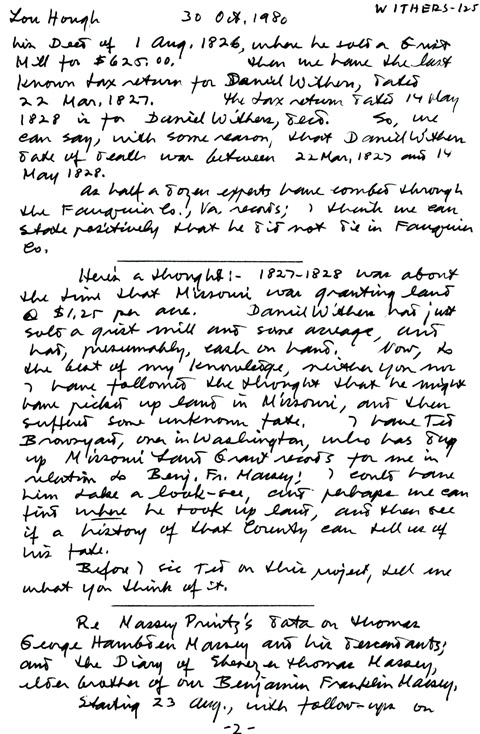 WITHERS-125
Lou Hough 30 Oct, 1980
his Deed of 1 Aug. 1826, where he sold a Grist
Mill for $625.00. Then we have the last
known tax return for Daniel Withers, dated
22 Mar, 1827. The tax return dated 14 May
1828 is for Daniel Withers, decd. So, we
can say, with some reason, that Daniel Withers
date of death was between 22 Mar, 1827 and 14
May 1828.
As half a dozen experts have combed through
the Fauquier Co., Va. records; I think we can
state positively that he did not die in Fauquier
Co.
Here's a thought:- 1827-1828 was about
the time that Missouri was granting land
@ $1.25 per acre. Daniel Withers had just
sold a grist mill and some acreage, and
had, presumably, cash on hand. Now, to
the best of my knowledge, neither you nor
I have followed the thought that he might
have picked up land in Missouri, and then
suffered some unknown fate. I have Ted
Brownyard, over in Washington, who has dug
up Missouri Land Grant records for me in
relation to Benj. Fr. Massey; I could have
him take a look-see, and perhaps we can
find where he took up land, and then see
if a history of that County can tell us of
his fate.
Before I sic Ted on this project, tell me
what you think of it.
Re Massey Printz's data on Thomas
George Hambden Massey and his descendants;
and the Diary of Thomas Massey,
elder brother of our Benjamin Franklin Massey.
Starting 23 Aug., with follow-ups on
-2-